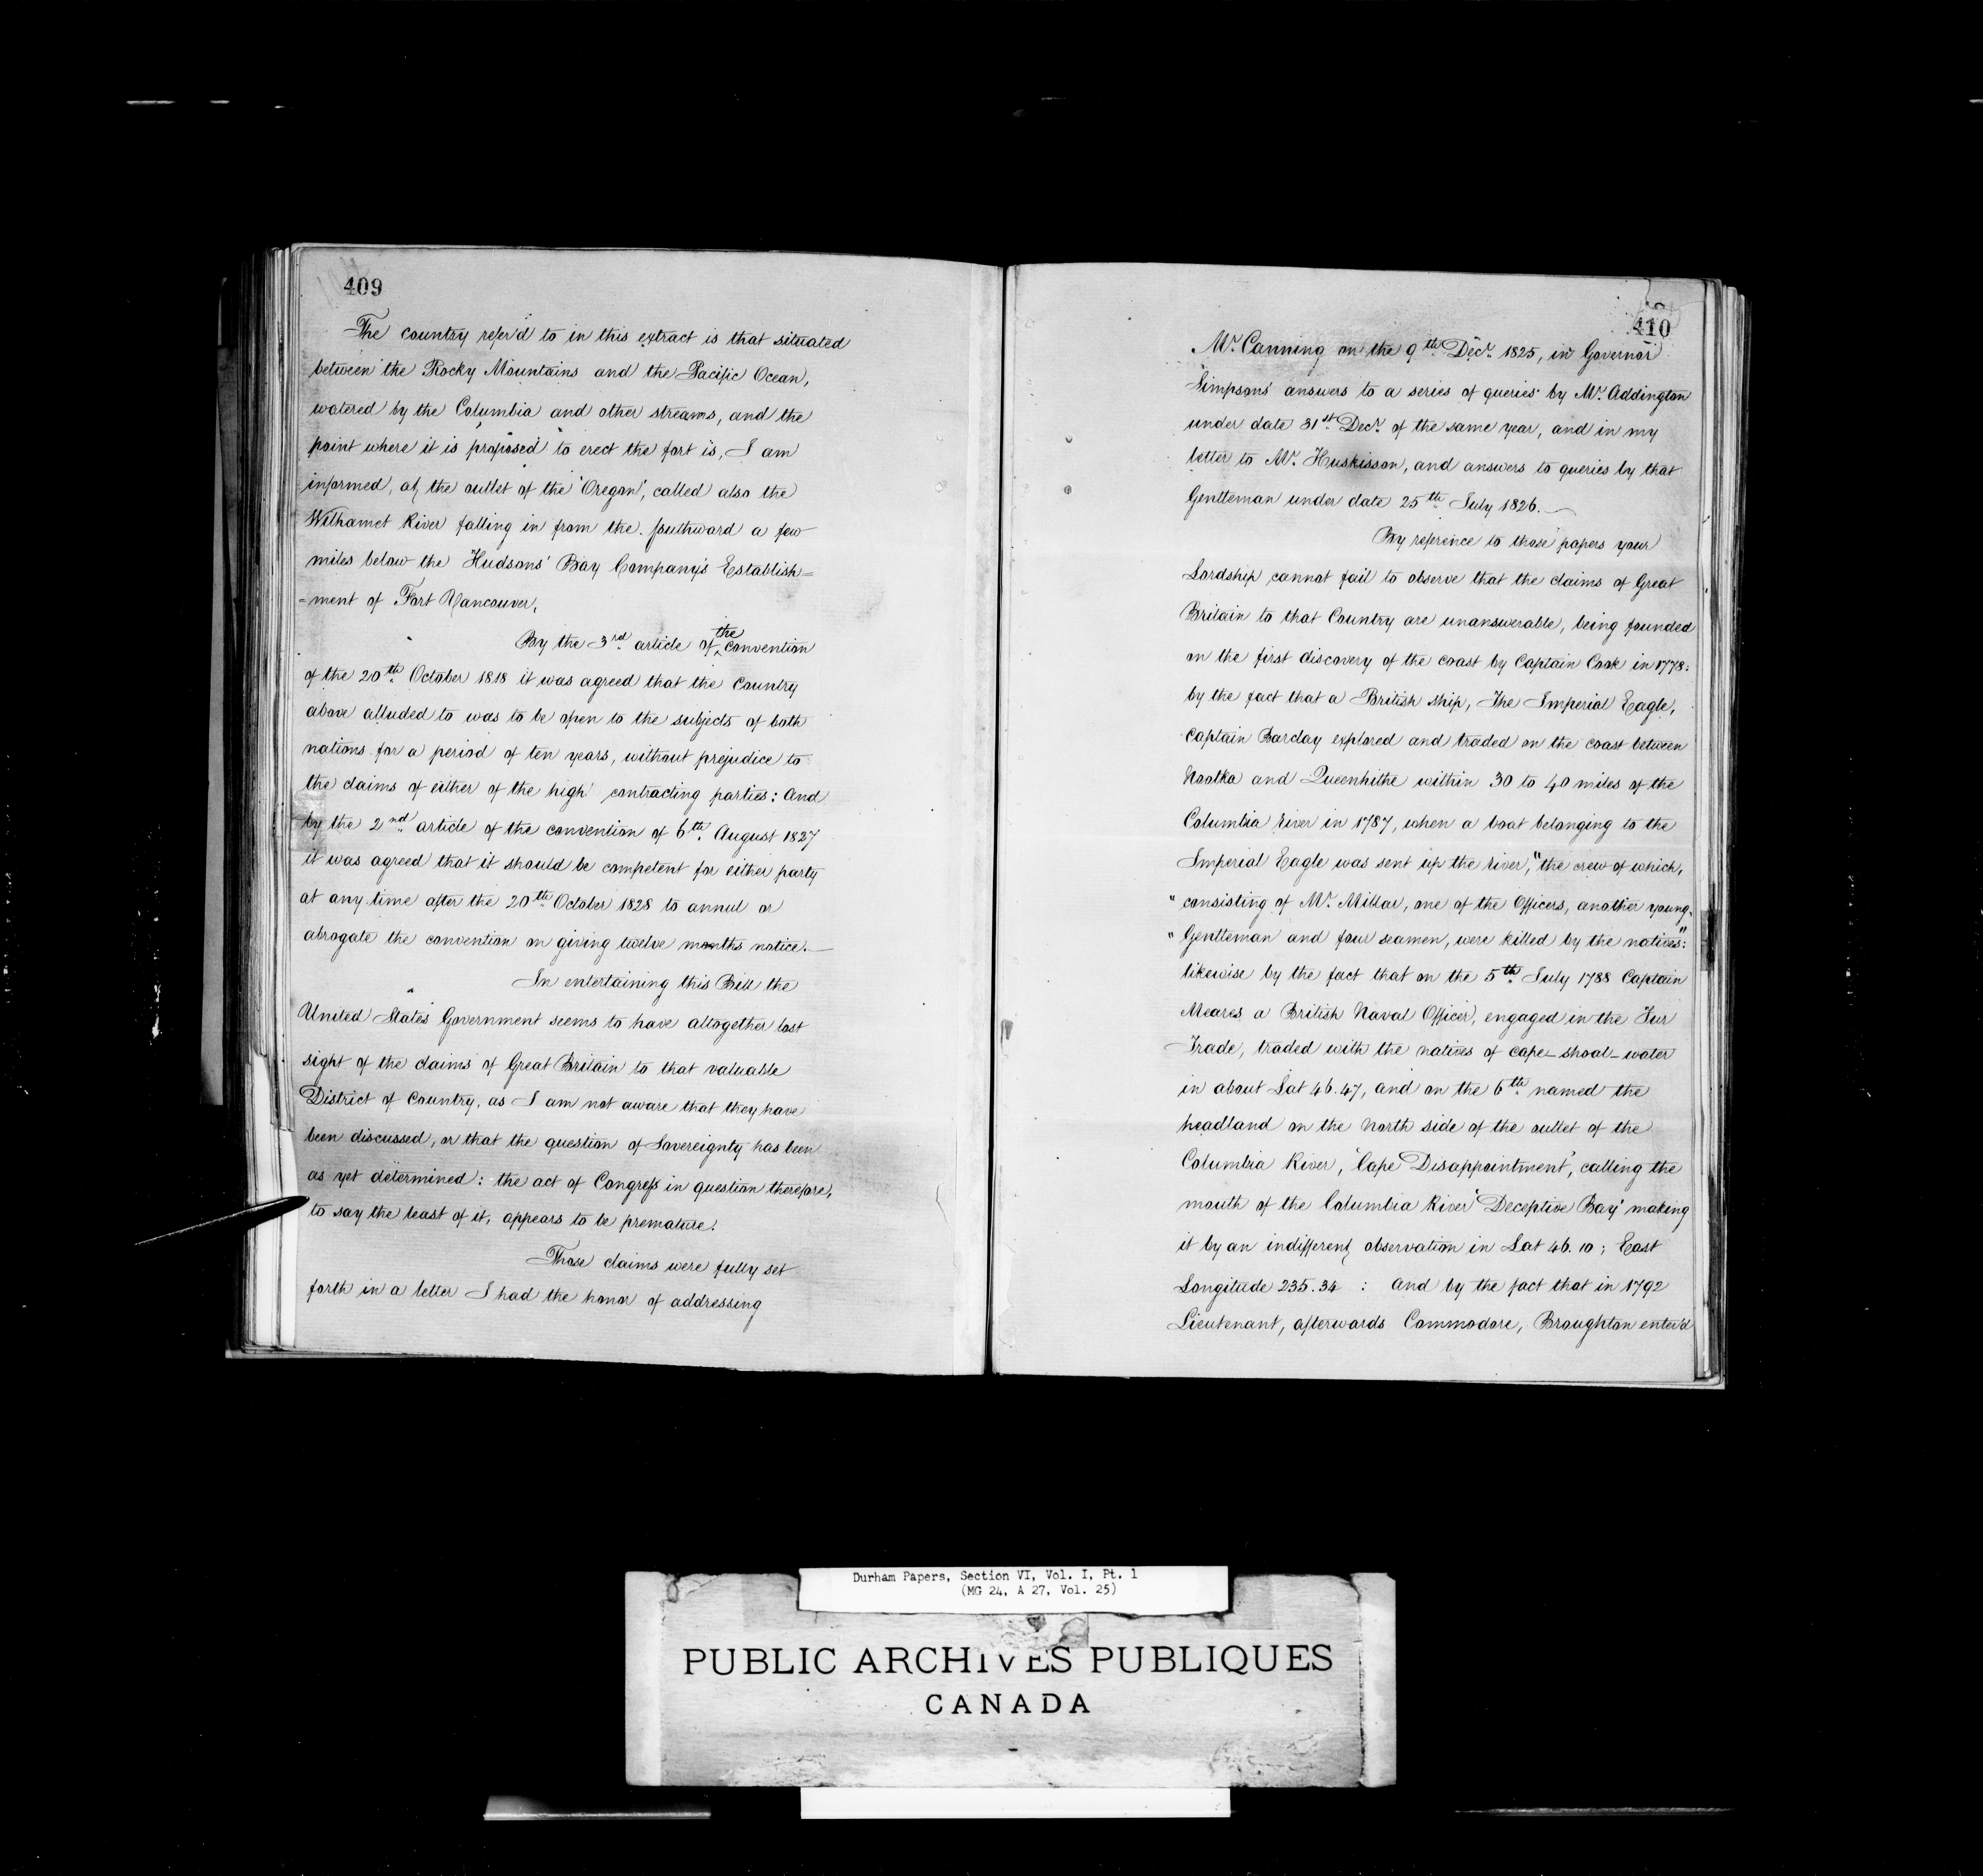 409
The country refer'd to in this extract is that situated
between the Rocky Mountains and the Pacific Ocean,
watered by the Columbia and other streams, and the
point where it is proposed to erect the fort is, I am
informed, at the outlet of the 'Oregon', called also the
Wilhamet River falling in from the Southward a few
miles below the Hudsons' Bay Company's Establish=
=ment of Fort Vancouver.
By the 3rd. article of the convention
of the 20th. October 1818 it was agreed that the Country
above alluded to was to be open to the subjects of both
nations for a period of ten years, without prejudice to
the claims of either of the high contracting parties: And
by the 2nd. article of the convention of 6th. August 1827
it was agreed that it should be competent for either party
at any time after the 20th. October 1828 to annul or
abrogate the convention on giving twelve months notice.—
In entertaining this Bill the
United States Government seems to have altogether lost
sight of the claims of Great Britain to that valuable
District of Country, as I am not aware that they have
been discussed, or that the question of Sovereignty has been
as yet determined: the act of Congress in question therefore,
to say the least of it, appears to be premature.
Those claims were fully set
forth in a letter I had the honor of addressing
410
Mr. Canning on the 9th. Decr. 1825, in Governor
Simpsons' answers to a series of queries by Mr. Addington
under date 31st. Decr. of the same year, and in my
letter to Mr. Huskisson, and answers to queries by that
Gentleman under date 25th. July 1826.—
By reference to those papers your
Lordship cannot fail to observe that the claims of Great
Britain to that Country are unanswerable, being founded
on the first discovery of the coast by Captain Cook in 1778:
by the fact that a British ship, The Imperial Eagle,
Captain Barclay explored and traded on the coast between
Nootka and Queenhithe within 30 to 40 miles of the
Columbia River in 1787, when a boat belonging to the
Imperial Eagle was sent up the river, "the crew of which,
" consisting of Mr. Millar, one of the Officers, another young
" Gentleman and four seamen, were killed by the natives":
likewise by the fact that on the 5th. July 1788 Captain
Meares a British Naval Officer, engaged in the Fur
Trade, traded with the natives of cape-shoal-water
in about Lat 46.47, and on the 6th. named the
headland on the North side of the outlet of the
Columbia River, 'Cape Disappointment', calling the
mouth of the Columbia River 'Deceptive Bay' making
it by an indifferent observation in Lat 46.10; East
Longitude 235.34 : And by the fact that in 1792
Lieutenant, afterwards Commodore, Broughton enter'd
Durham Papers, Section VI, Vol. I, Pt. 1
(MG 24, A 27, Vol. 25)
PUBLIC ARCHIVES PUBLIQUES
CANADA